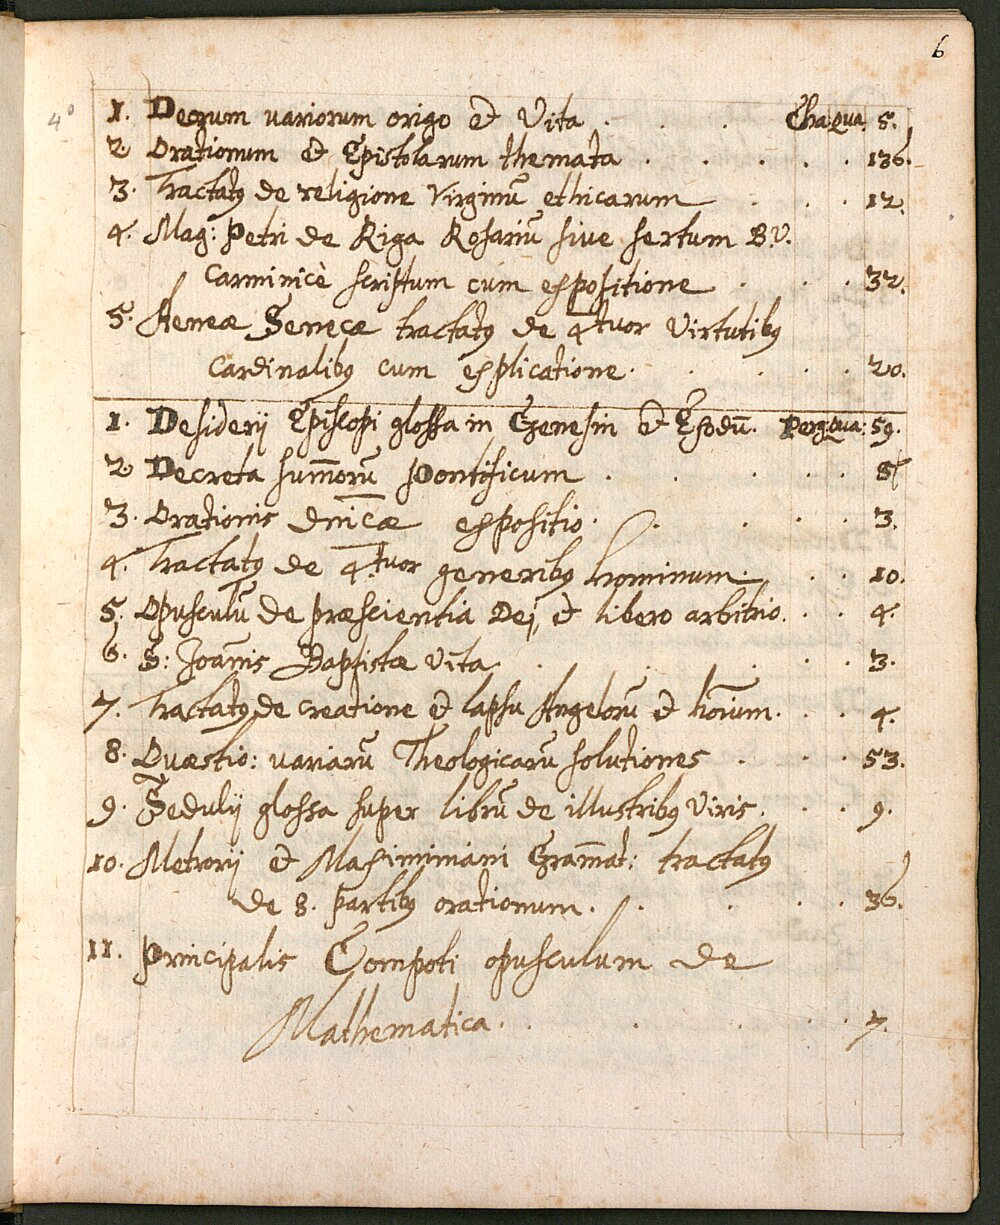 6
4°
1. Deorum variorum origo et Vita . . . Cha. qua. 5.
2 Orationum et Epistolarum themata . . . . . 136.
3. Tractatꝰ de religione Virginū ethicarum . . . 12.
4. Mag: Petri de Riga Rosariū sive sertum B.V.
Carminicè scriptum cum expositione . . . 32.
5. Aeneae Senecae tractatꝰ de 4tuor Virtutibꝰ
Cardinalibꝰ cum explicatione . . . . . 20.
1. Desiderij Episcopi glossa in Genesin et Exodū. Perg. qua: 59.
2 Decreta sum̄orū Pontificum . . . . .
3. Orationis dnicae expositio . . . . 3.
4. Tractatꝰ de 4.tuor generibꝰ hominum . . . 10.
5. Opusculū de praescientia Dei, et libero arbitrio . . . 4.
6. S: Joan̄is Baptistae vita . . . . . 3.
7. Tractatꝰ de creatione et lapsu Angelorū et hoīum. . . 4.
8. Quaestio: variarū Theologicarū solutiones . . . 53.
9. Sedulij glossa super librū de illustribꝰ Viris. . . 9.
10. Metrorij et Maximiniani Gram̄at: tractatꝰ
de 8. partibꝰ orationum . . . . . 36.
11. Principalis Compoti opusculum de
Mathematica . . . . . 7.